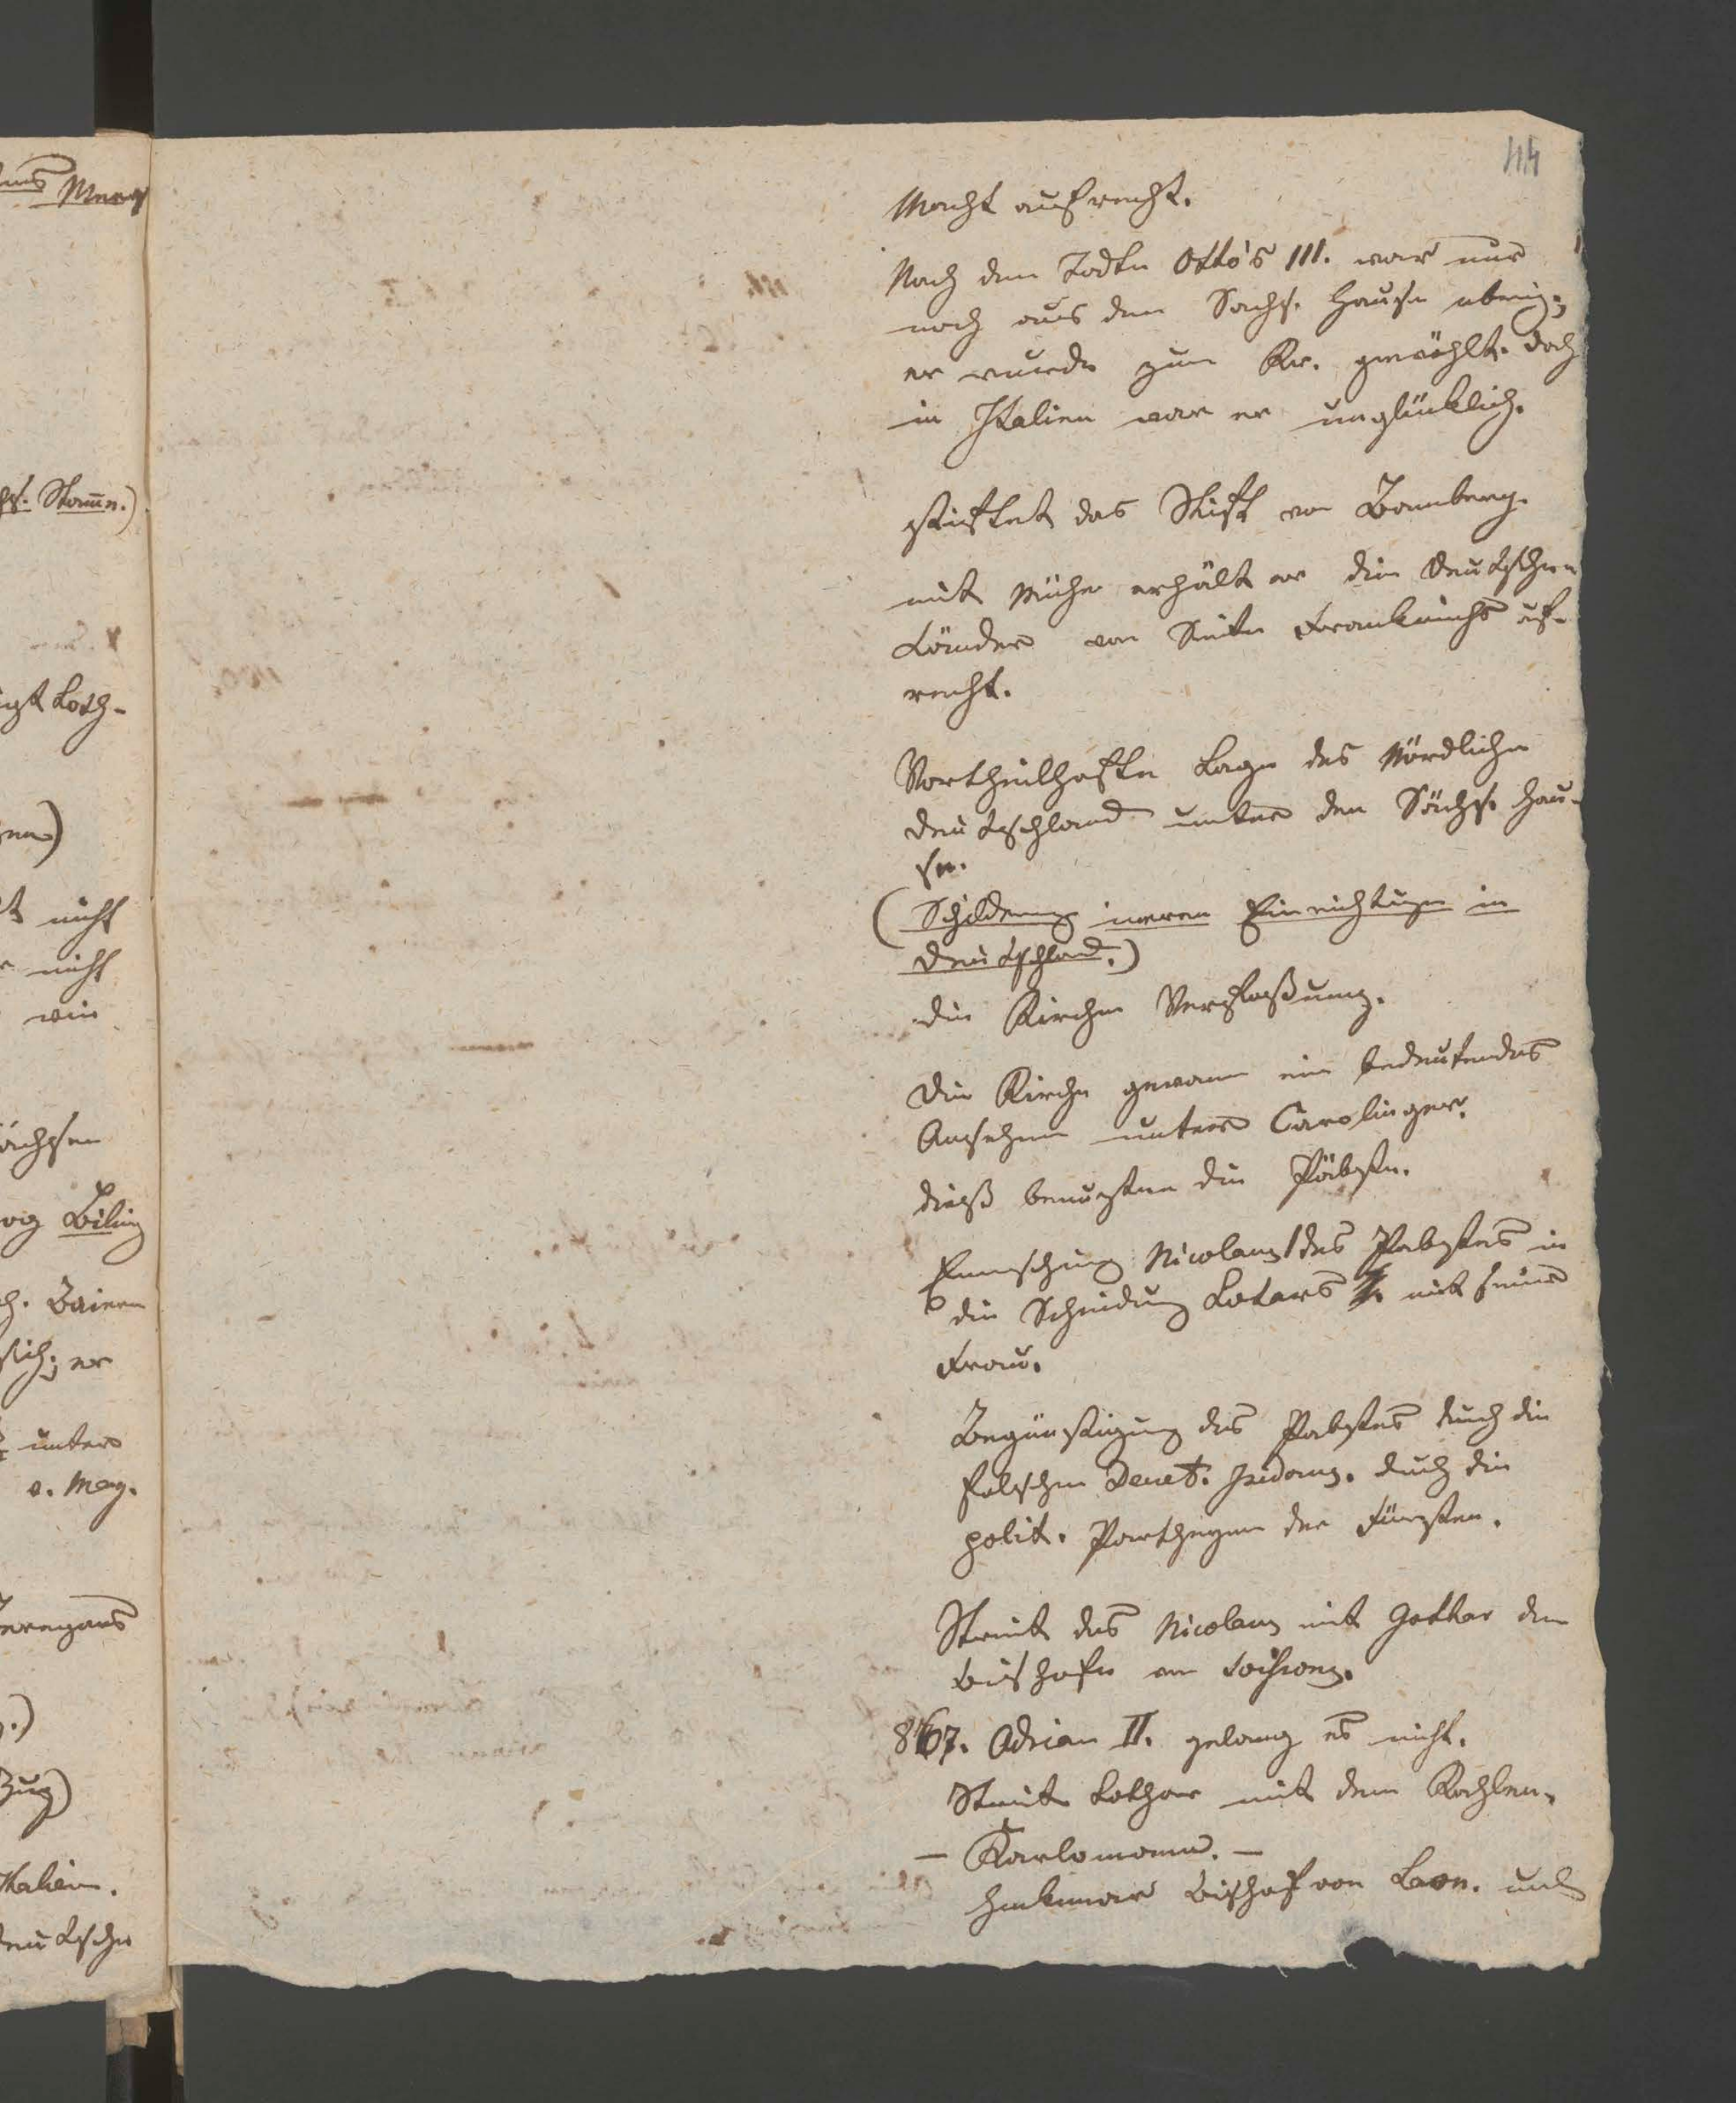 114
Macht aufrecht.
Nach dem Todte Otto's III. war nur
noch aus dem Sachs. Hause ubrig;
er wurde zum Kr. gewählt. doch
in Italien war er unglücklich.
stiftet das Stift von Bamberg.
mit Mühe erhält er die deutschen
Länder von Seite Frankreichs auf-
recht.
Vortheilhafte Lage des Nördlichen
deutschland unter dem Sächs. Hau-
se.
(Schilderung inneren Einrichtugen in
deutschland.)
die Kirchen Verfaßung.
Die Kirche gewann ein bedeutendes
Ansehen unter Carolinger.
dieß benutzten die Päbste.
Einmischung Nicolaus I des Pabstes in
die Scheidung Lotars mit seiner
Frau.
Begünstigung des Pabstes durch die
falschen Decret. Isidorus. durch die
polit. Partheyen der Fürsten.
Streit des Nicolaus mit Gothar dem
Bischofe von Soissons.
867. Adrian II. gelang es nicht.
Streite Lothar mit dem Kahlen.
— Karlomann. —
Hinkmar Bischof von Laon. und
Stam̄n.)
Loth-
nicht
nicht
wie
Biling
Baiern
sich; er
unter
v. Mag.
Zug)
Italien.
deutsche